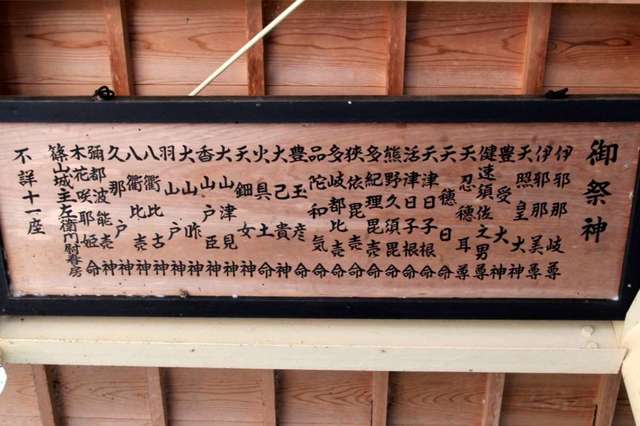 御祭神
伊邪那岐尊
伊邪那美尊
天照皇大神
豊受大神
健速須佐之男尊
天忍徳耳尊
天徳日命
天津日子根命
活津日子根命
熊野久須毘命
多紀理毘売命
狭依毘売命
多岐都比売命
品陀和気命
豊玉彦命
大己貴神
火具土命
天鈿女命
大山津見神
香山戸臣神
大山咋神
羽山戸神
八衢比古神
八衢比売神
久那戸神
彌都波能売神
木花咲耶姫命
篠山城主左衛門尉春房
不詳十一座